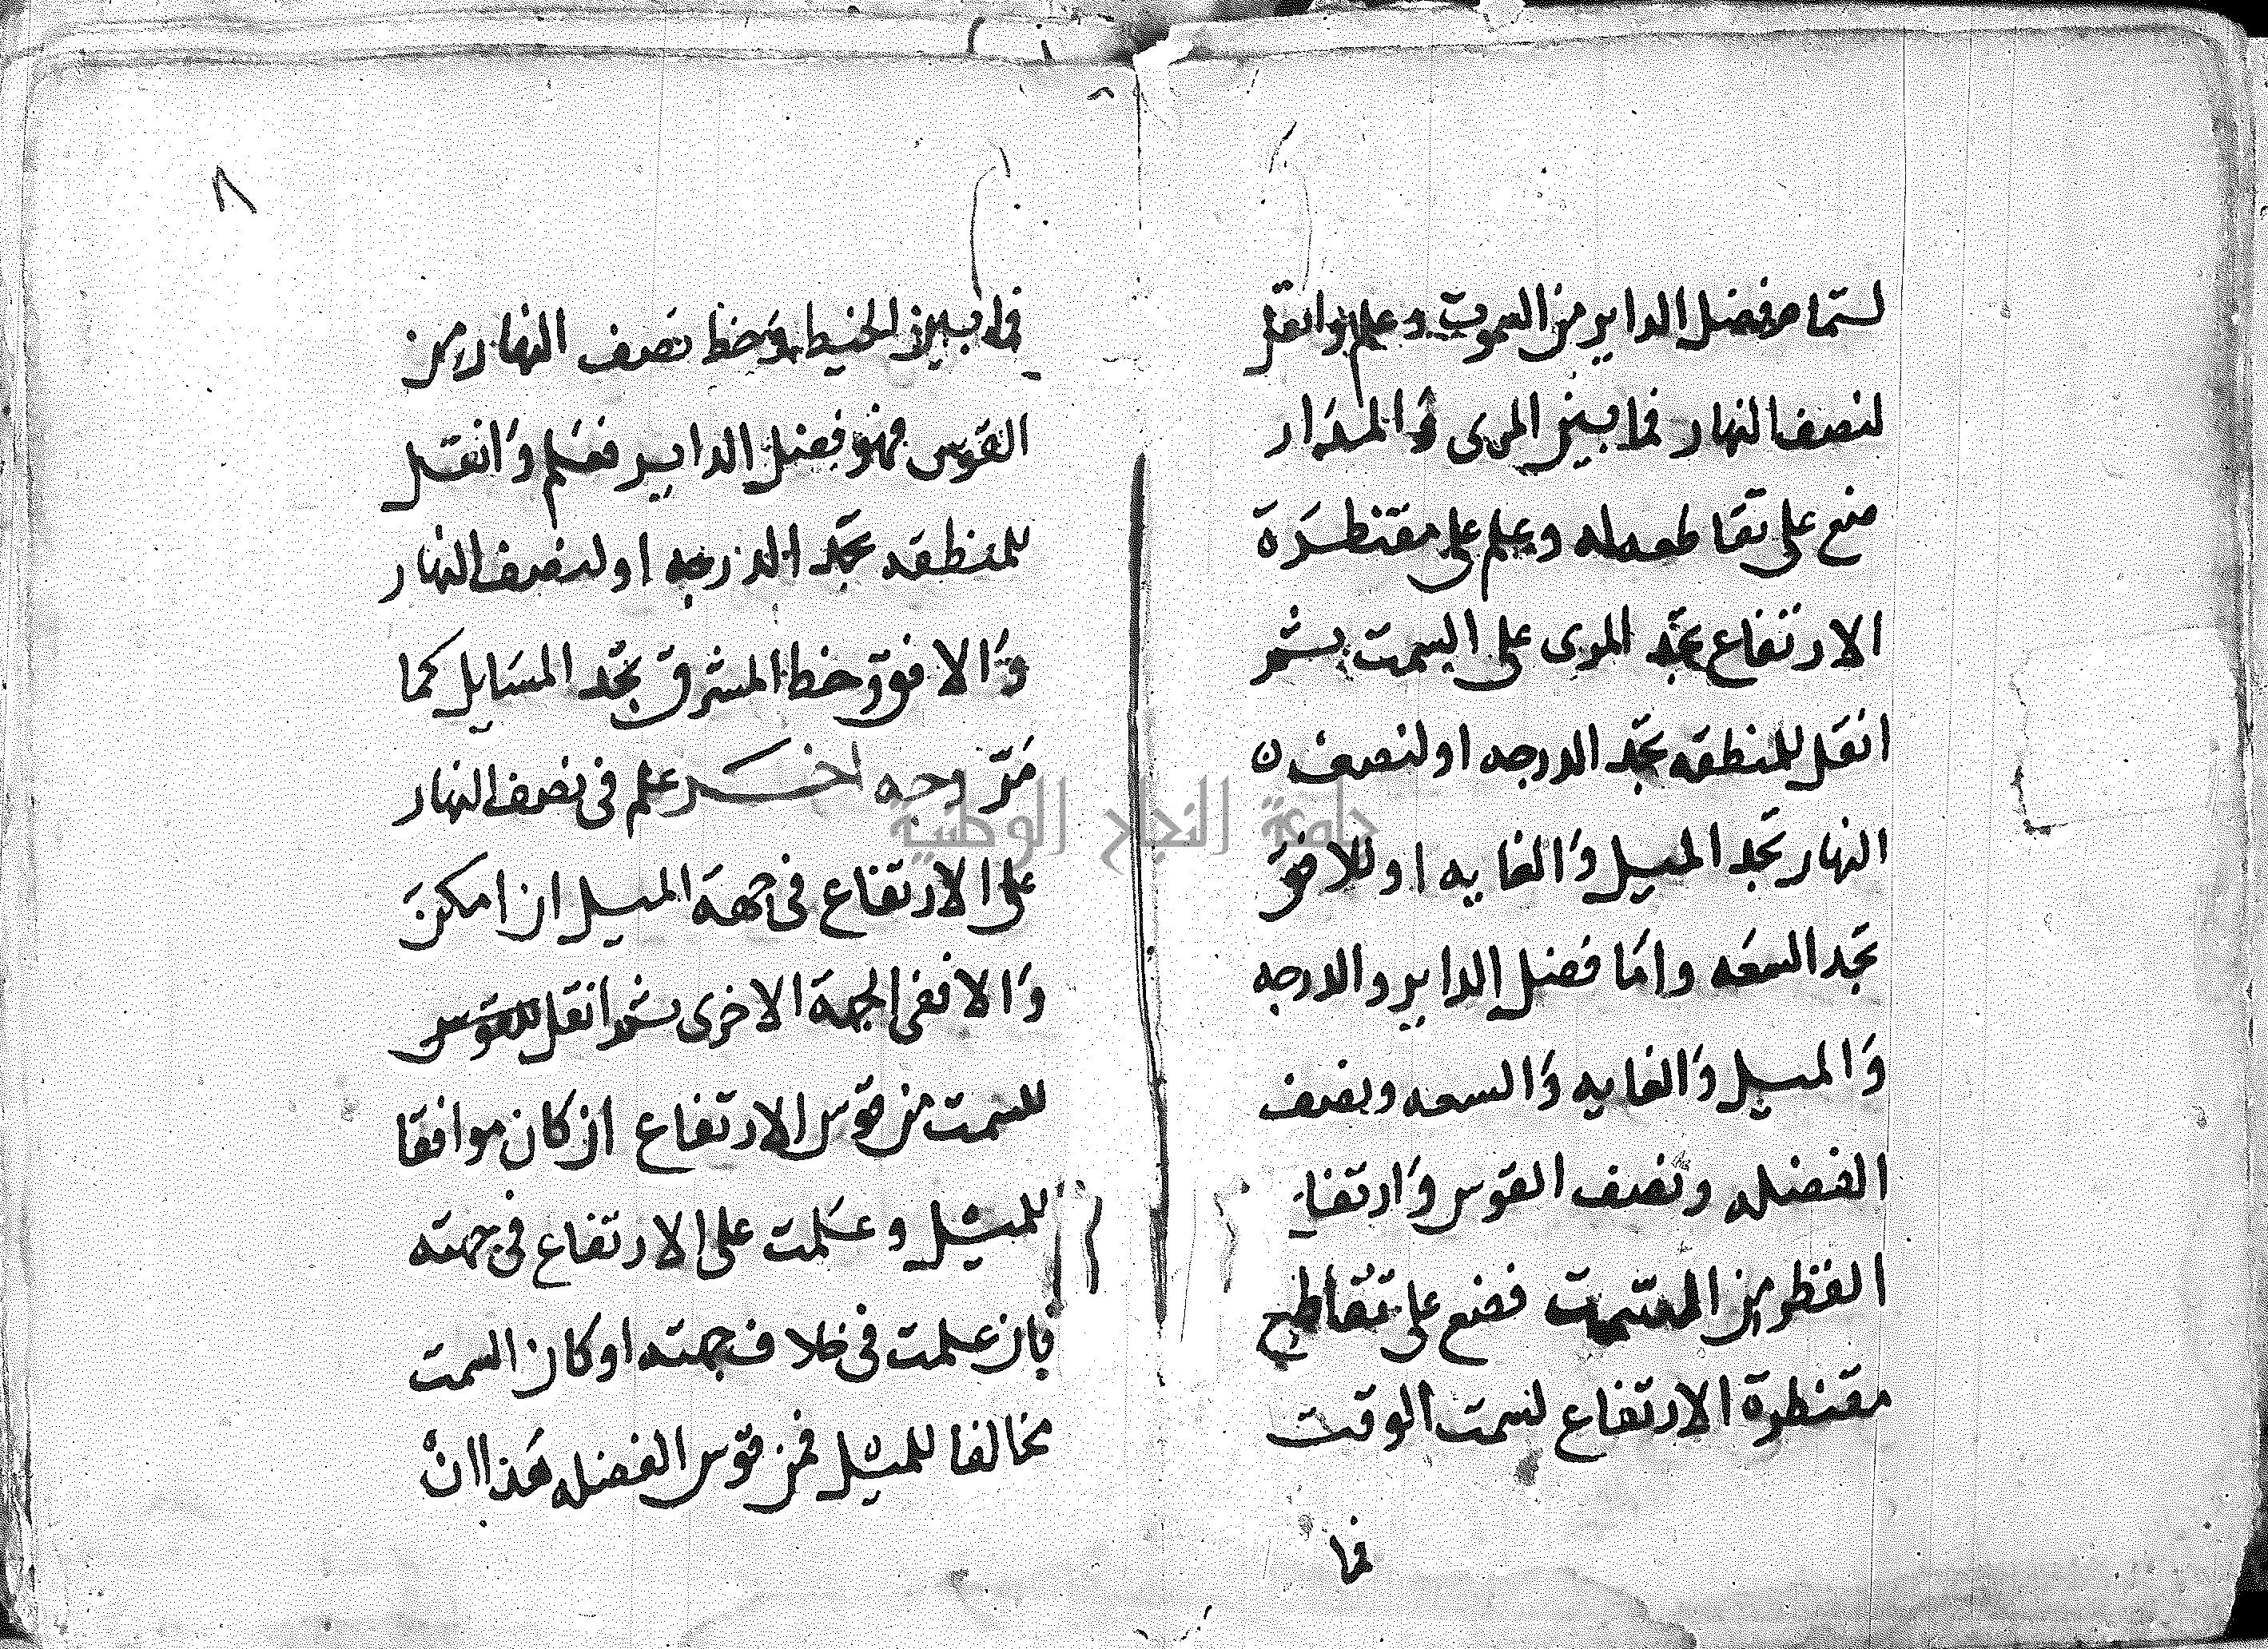 لستما مرفضل الداير من السموت وعلم وانقل
لنصف النهار فما بين المرى والمدار
ضع على تقاطعه له وعلم على مقنطرة
الارتفاع تجد المرى على السمت ثم
انقل للمنطقه تجد الدرجه او لنصف ٥
النهار تجد الميل والغايه او للافق
تجد السعه واما فضل الداير والدرجه
والميل والغايه والسعه ونصف
الفضله ونصف القوس وارتفا
القطر من السمت فضع على تقاطع
مقنطرة الارتفاع لسمت الوقت
فما
٨
فما بين الخيط وخط نصف النهار من
القوس فهو فضل الداير فعلم وانقل
للمنطقه تجد الدرجه او لنصف النهار
والافق وخط المشرق تجد المسايل كما
مر وجه اخر علم فى نصف النهار
على الارتفاع فى جهة الميل ان امكن
والا ففى الجهة الاخرى ثم انقل
للسمت من قوس الارتفاع ان كان موافقا
للميل وعلمت على الارتفاع فى جهته
فان علمت فى خلاف جهته او كان السمت
مخالفا للميل فمن قوس الفضله هذا ان
جامعة النجاح الوطنية